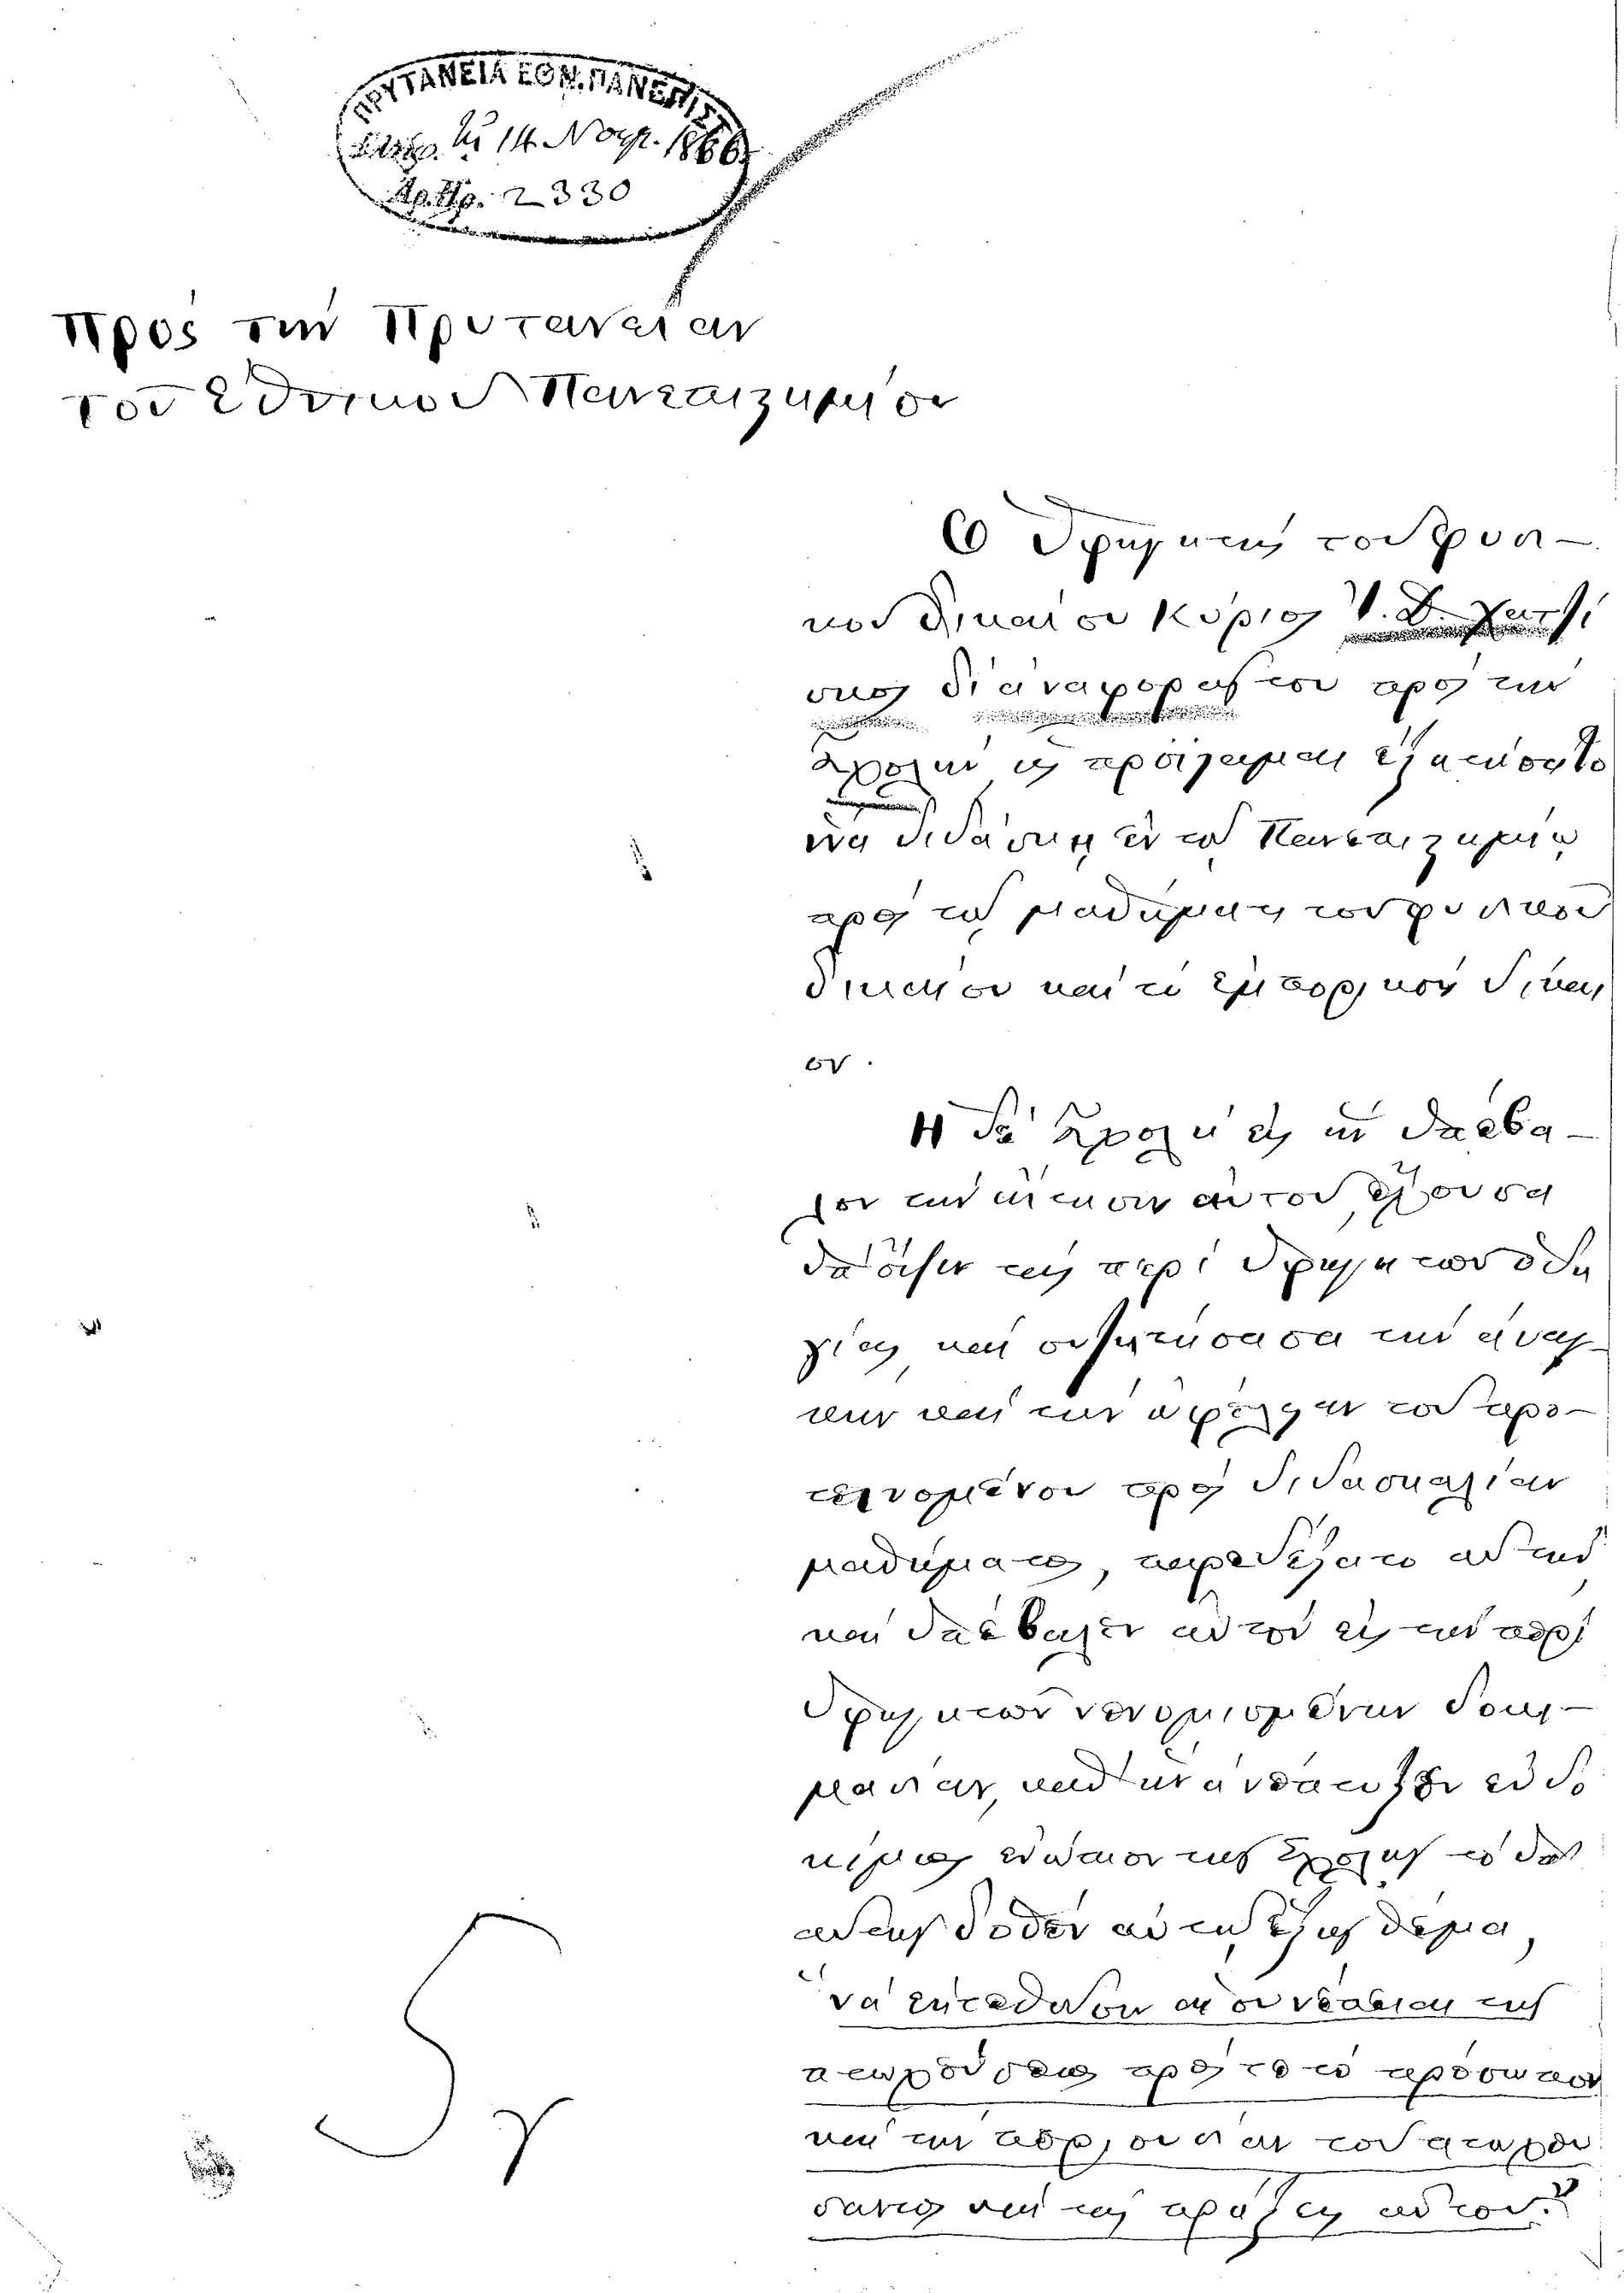 ΠΡΥΤΑΝΕΙΑ ΕΘΝ. ΠΑΝΕΠΙΣΤ
τῇ 14 Νοεμ. 1866
Αρ. Πρ. 2330
Πρὸς τὴν Πρυτανείαν
τοῦ Ἐθνικοῦ Πανεπιστημίου
Ὁ ὑφηγητὴς τοῦ φυσι-
κοῦ δικαίου κύριος Ι. Δ. Χατζί
σκος δι' ἀναφορᾶς του πρὸς τὴν
Σχολὴν ἧς προΐσταμαι ἐξῃτήσατο
ἵνα διδάσκῃ ἐν τῷ Πανεπιστημίῳ
πρὸς τοῖς μαθήμασι τοῦ φυσικοῦ
δικαίου καὶ τὸ ἐμπορικὸν δίκαι
ον.
Ἡ δὲ Σχολὴ εἰς ἣν ὑπέβα-
λον τὴν αἴτησιν αὐτοῦ, ἔχουσα
ὑπ' ὄψιν τὰς περὶ ὑφηγητῶν ὁδη
γίας, καὶ συζητήσασα τὴν ἀνάγ-
κην καὶ τὴν ὠφέλειαν τοῦ προ-
τεινομένου πρὸς διδασκαλίαν
μαθήματος, παρεδέξατο αὐτὴν
καὶ ὑπέβαλεν αὐτὸν εἰς τὴν περὶ
ὑφηγητῶν νενομισμένην δοκι-
μασίαν, καθ' ἣν ἀνέπτυξεν εὐδο
κίμως ἐνώπιον τῆς Σχολῆς τὸ ὑπ'
αὐτῆς δοθὲν αὐτῷ ἑξῆς θέμα,
"νὰ ἐκτεθῶσιν αἱ συνέπειαι τῆς
πτωχεύσεως πρὸς τε τὸ πρόσωπον
καὶ τὴν περιουσίαν τοῦ πτωχεύ
σαντος καὶ τὰς πράξεις αὐτοῦ."